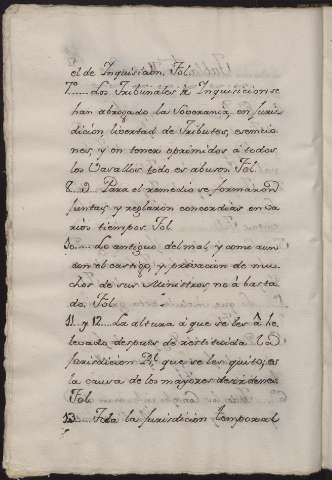 el de Inquisicion. Fol.
7..... Los Tribunales de Inquisicion se
han abrogado la Soverania, en Juris-
dicion, libertad de Tributos, esencio-
nes, y en tener oprimidos á todos
los Vasallos todo es abuso. Fol.
8. 9. Para el remedio se formaron
Juntas, y reglaron concordias en va-
rios tiempos. Fol.
10.... Lo antiguo del mal, y como aun
con el castigo, y privacion de mu-
chos de sus Ministros no á basta-
do. Fol.
11. y 12.... La altura á que se les á he-
levado despues de restituida la
Jurisdicion Rl. que se les quitó, es
la causa de los mayores desordenes.
Fol.
13... Toda la Jurisdicion temporal